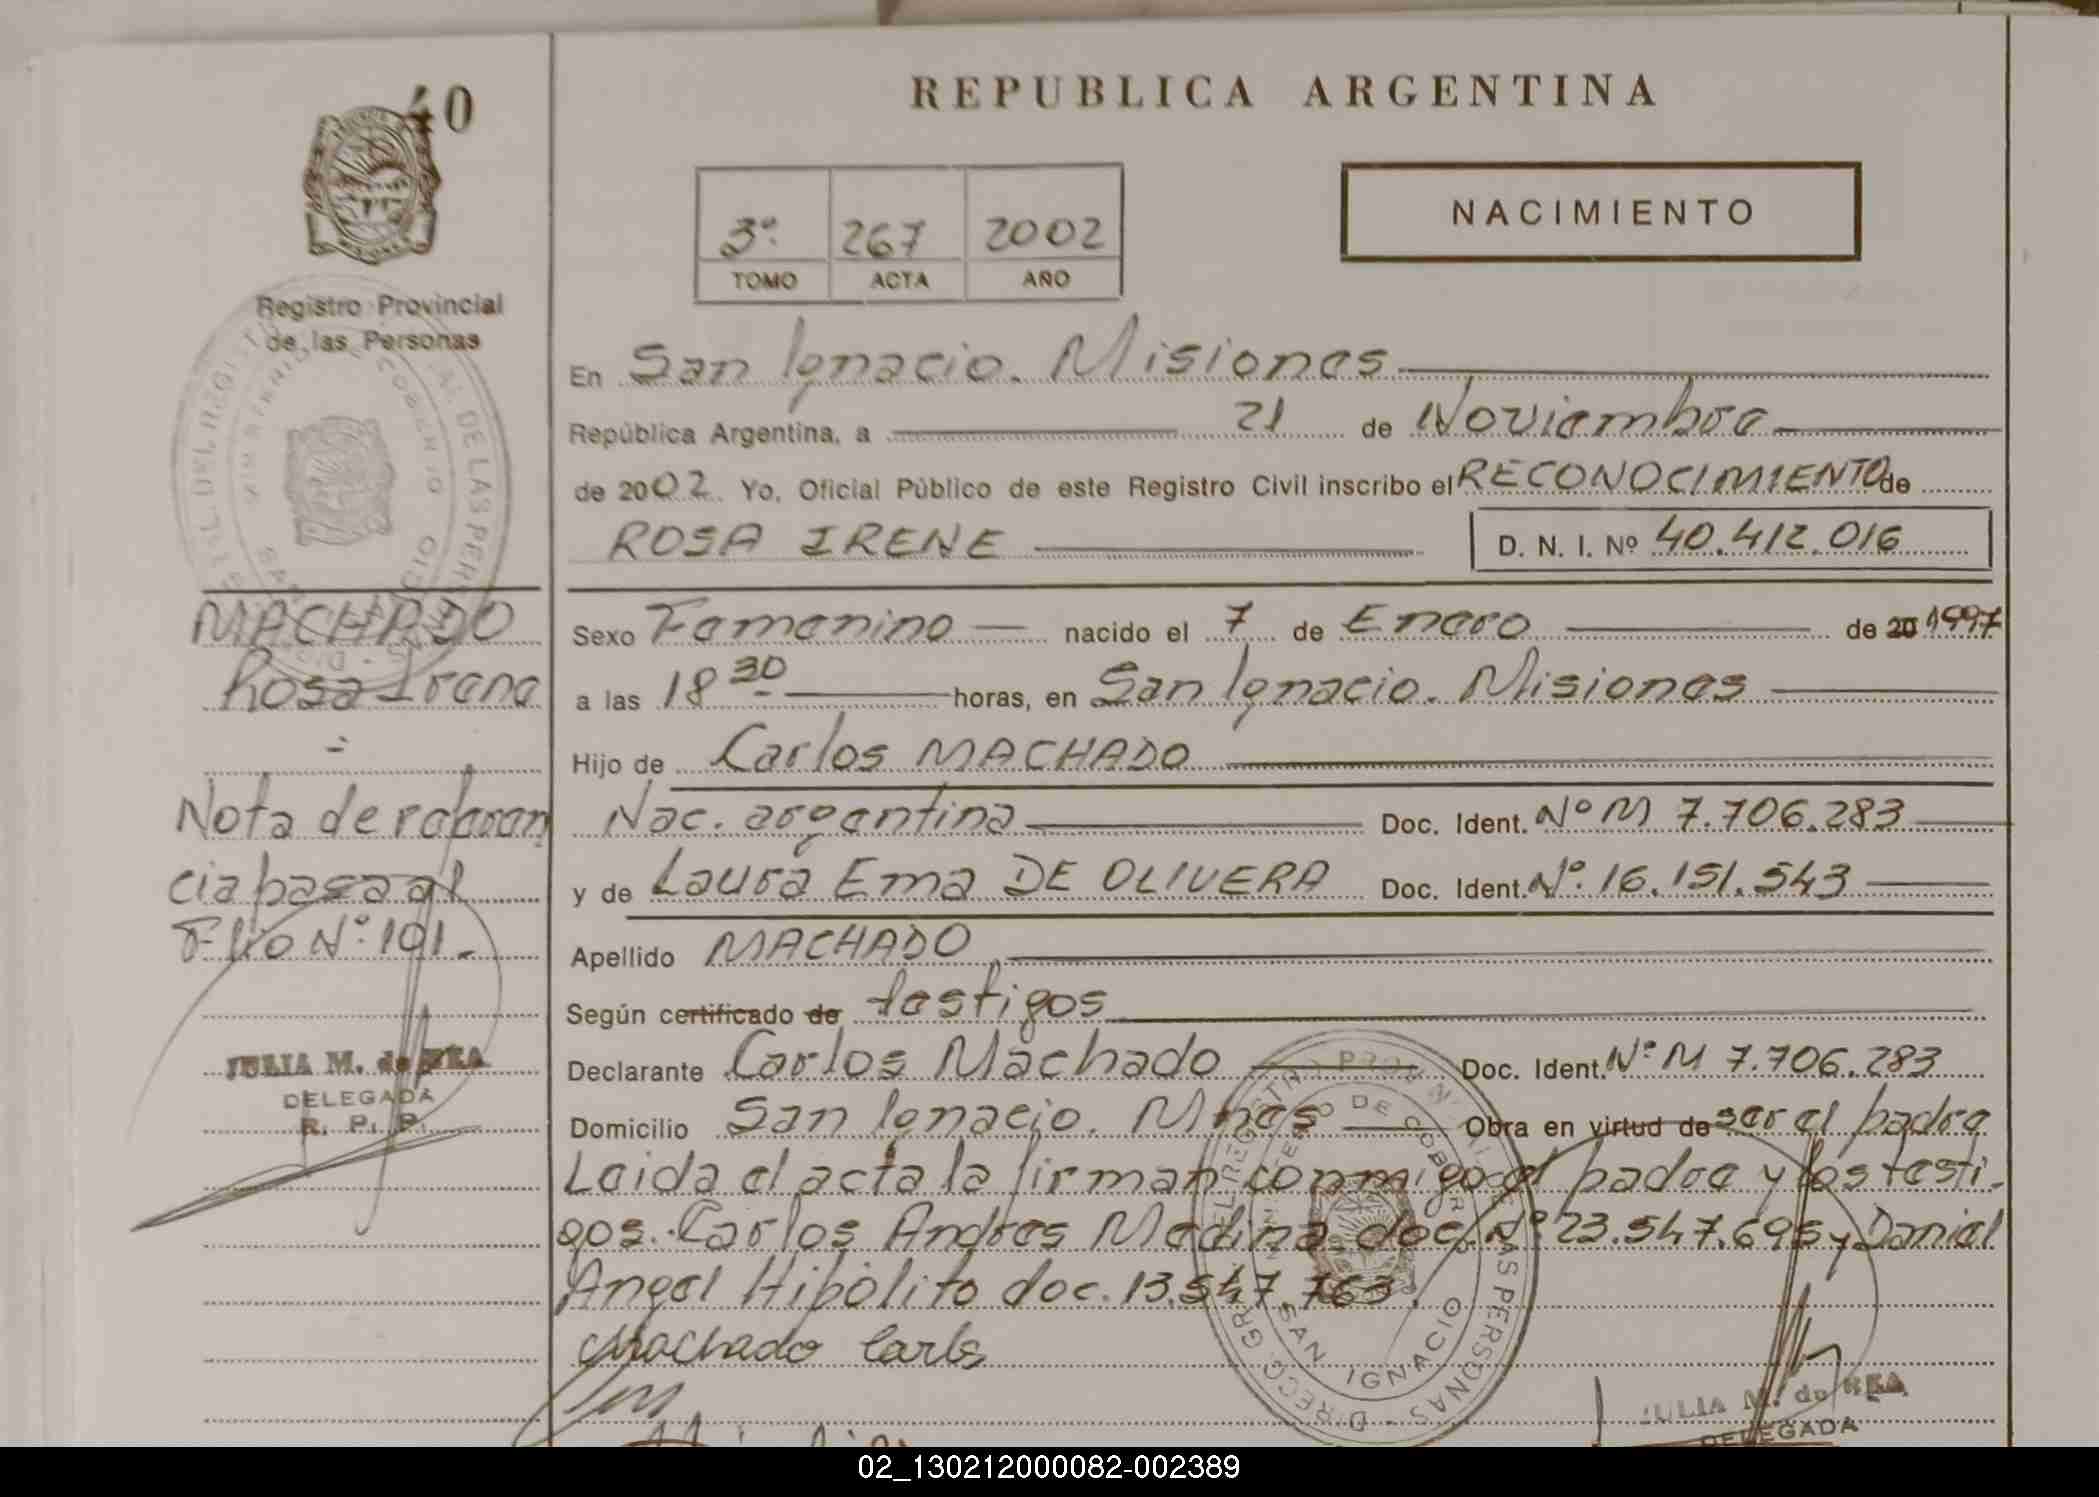 40
REPUBLICA ARGENTINA
NACIMIENTO
3º 267 2002
TOMO ACTA AÑO
Registro Provincial
de las Personas
En San Ignacio. Misiones
República Argentina, a 21 de Noviembre
de 2002 Yo, Oficial Público de este Registro Civil inscribo el RECONOCIMIENTO de
ROSA IRENE D. N. I. Nº 40.412.016
MACHADO
Rosa Irene
Nota de referen
cia pasa al
Flio Nº 101.-
JULIA M. de REA
DELEGADA
R. P. P.
Sexo Femenino nacido el 7 de Enero de 20 1997
a las 18 30 horas, en San Ignacio. Misiones
Hijo de Carlos MACHADO
Nac. argentina Doc. Ident. Nº M 7.706.283
y de Laura Ema DE OLIVERA Doc. Ident. Nº. 16.151.543
Apellido MACHADO
Según certificado de testigos
Declarante Carlos Machado Doc. Ident. Nº M 7.706.283
Domicilio San Ignacio. Mnes Obra en virtud de ser el padre
Leida el acta la firman conmigo el padre y los testi-
gos. Carlos Andres Medina doc. Nº 23.547.695 y Daniel
Angel Hipólito doc. 13.547.763.
Machado Carls
SAN IGNACIO
JULIA M. de REA
DELEGADA
02_130212000082-002389